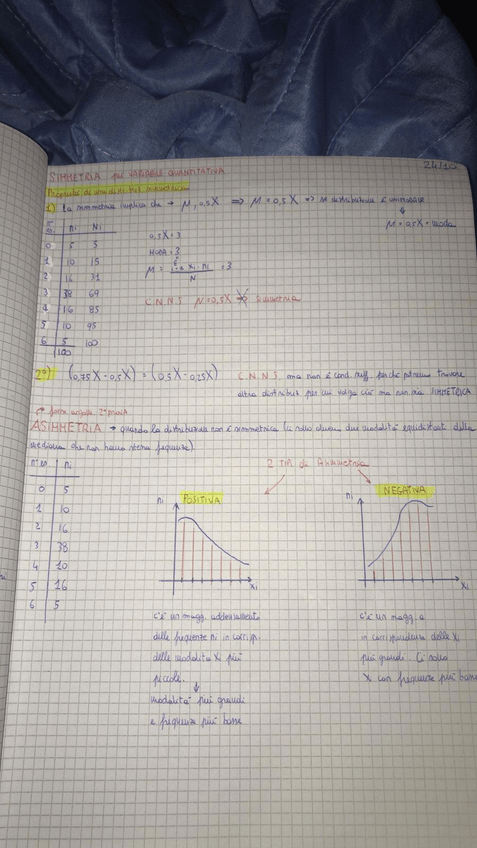 24/10
SIMMETRIA per VARIABILE QUANTITATIVA
Proprietà di una distribuz. simmetrica
1) la simmetria implica che → μ, 0,5X ⇒ μ = 0,5X ⇒ se distribuzione è unimodale
↓
μ = 0,5X = moda
ni Ni
0 5 5
1 10 15
2 16 31
3 38 69
4 16 85
5 10 95
6 5 100
100
0,5X = 3
MODA = 3
μ = Σ xi · ni / N = 3
C N N S μ = 0,5X ⇏ simmetria
2°) (0,75X - 0,5X) = (0,5X - 0,25X) C N N S ma non è cond. suff. perché possiamo trovare
altra distribuz. per cui valga ciò ma non sia SIMMETRICA
forma uguale 2° metà
ASIMMETRIA → quando la distribuzione non è simmetrica (ci sono almeno due modalità equidistanti dalla
mediana che non hanno stessa frequenza)
2 TIPI di Asimmetria
ni
0 5
1 10
2 16
3 38
4 10
5 16
6 5
ni POSITIVA Xi
ni NEGATIVA Xi
c'è un magg. addensamento
delle frequenze ni in corrisp.
delle modalità Xi più
piccole.
↓
modalità più grandi
e frequenze più basse
c'è un magg. a
in corrispondenza delle Xi
più grandi. Ci sono
X con frequenze più basse